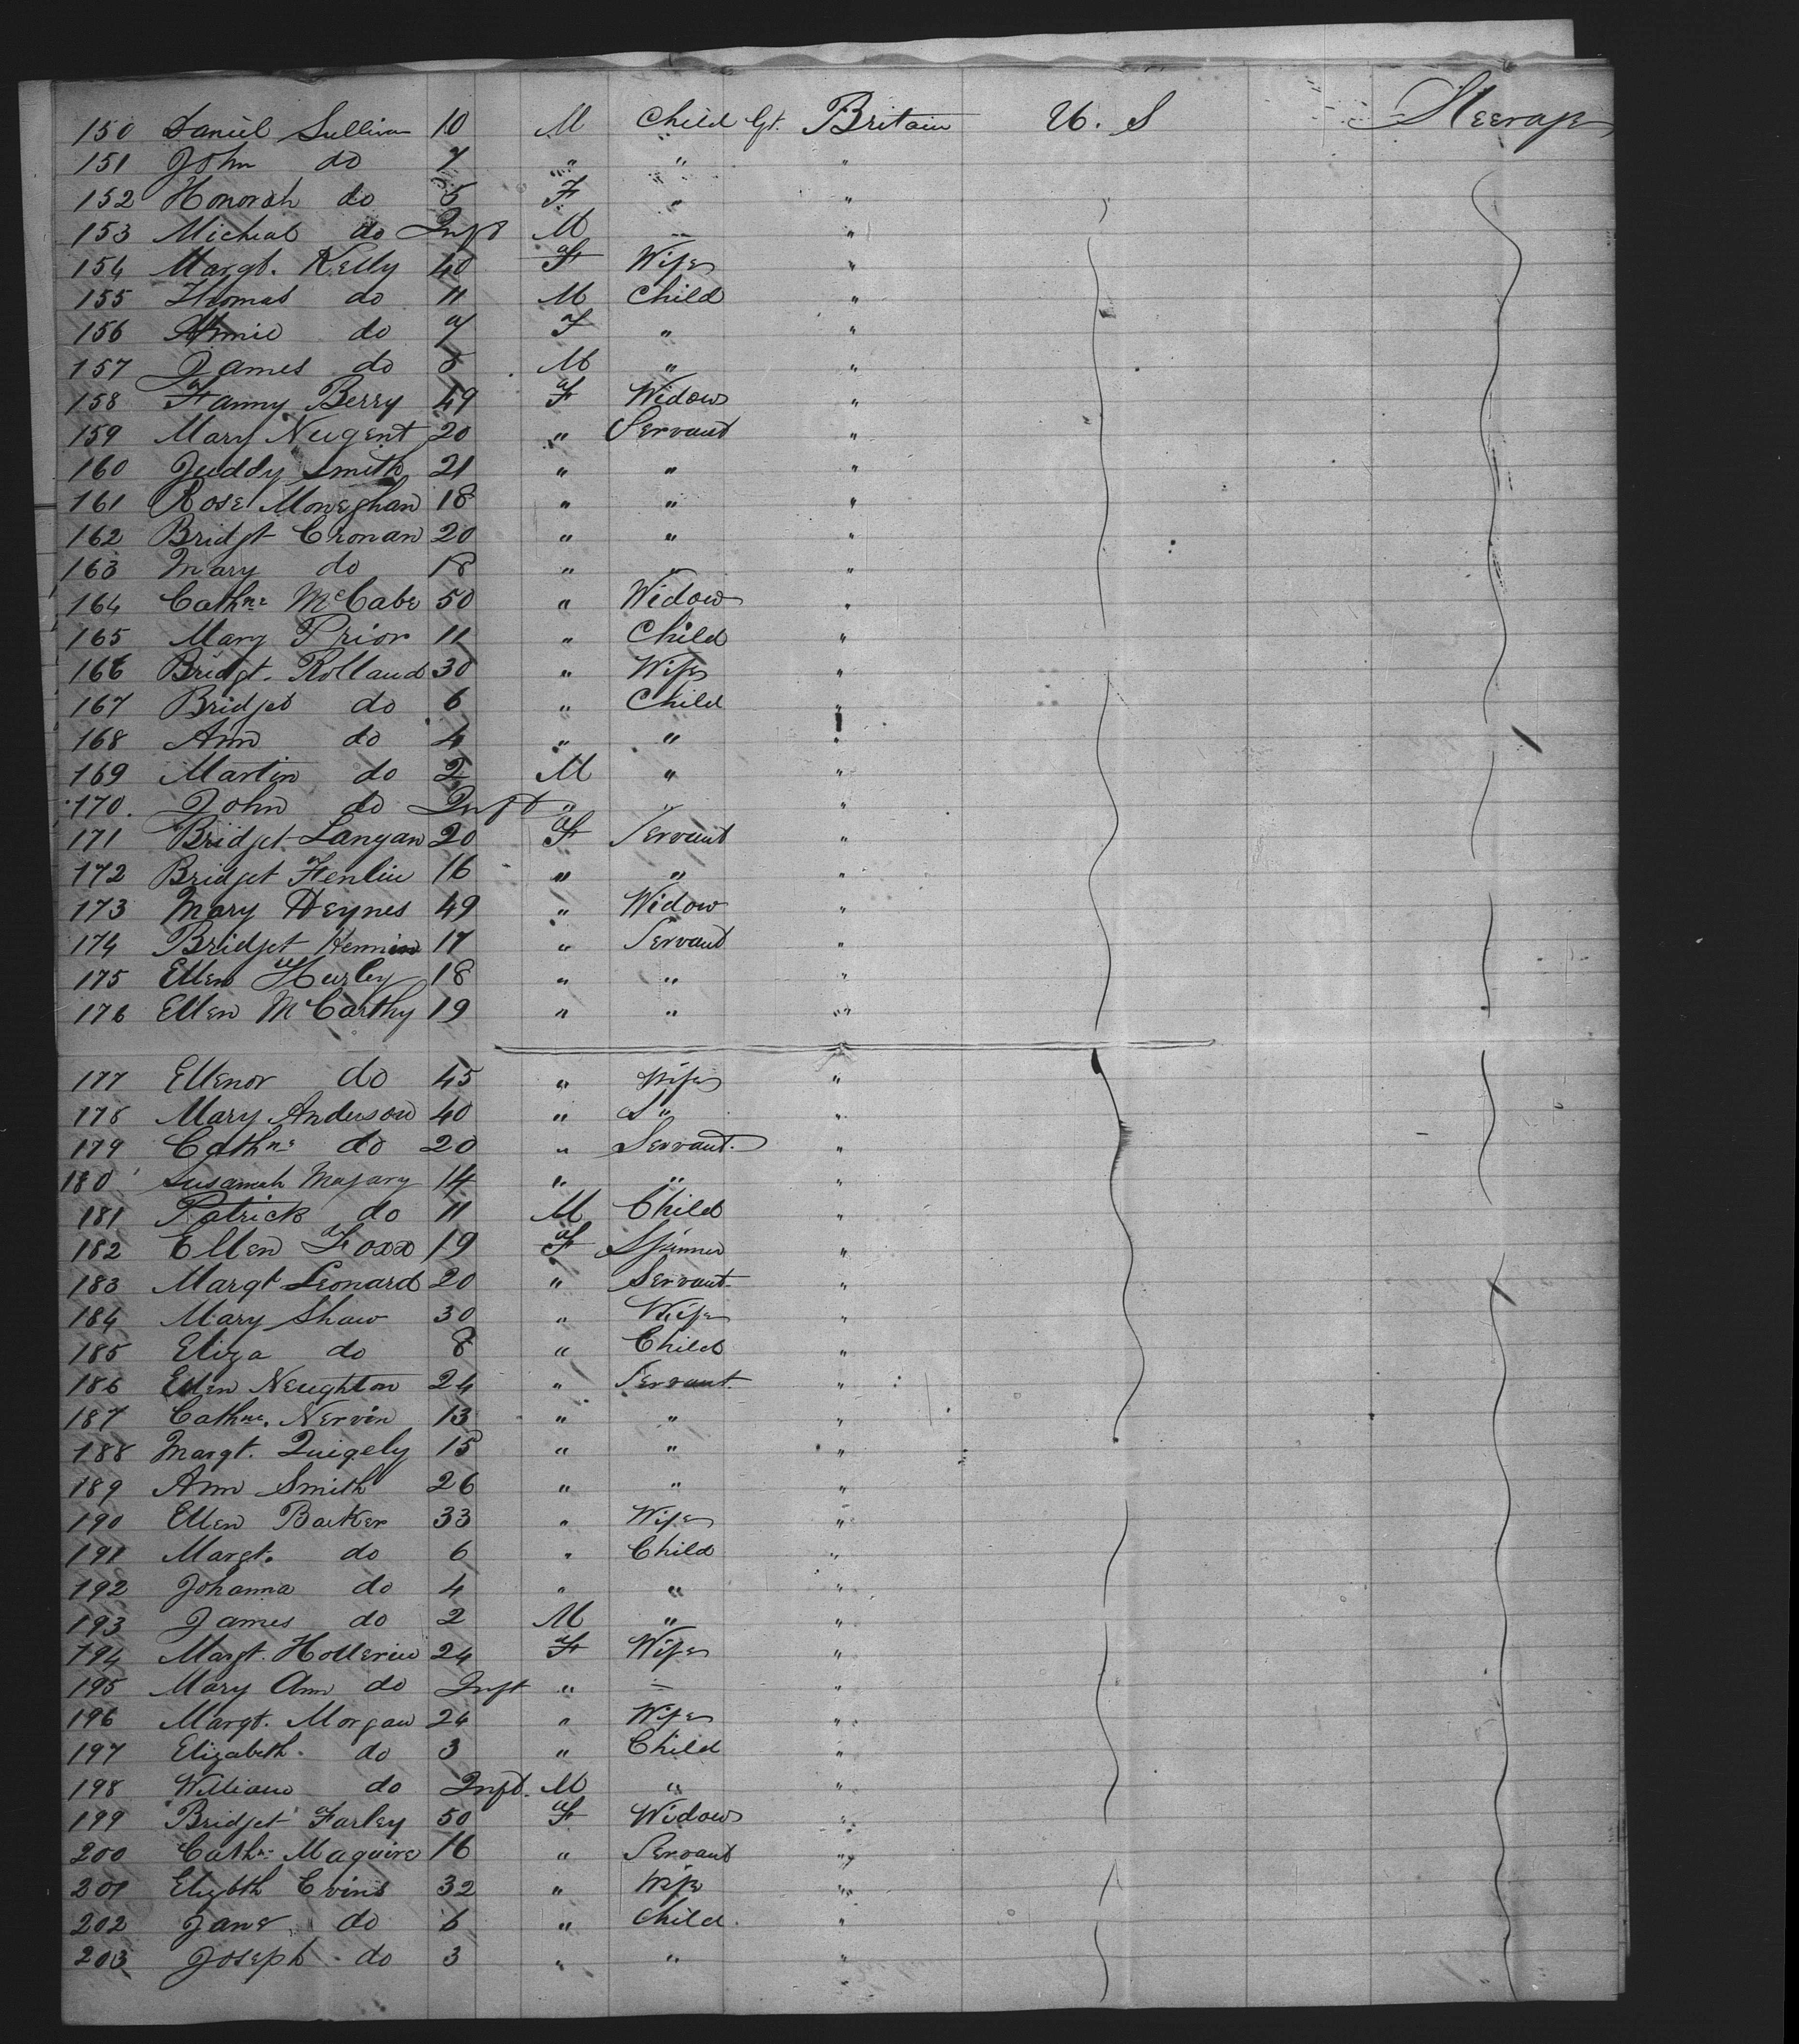 150 Daniel Sullivan 10 M Child Gt. Britain U. S Steerage
151 John do 7 " " "
152 Honorah do 5 F " "
153 Micheal do Inft M "
154 Margt. Kelly 40 F Wife "
155 Thomas do 11 M Child "
156 Annie do 7 F " "
157 James do 5 M " "
158 Fanny Berry 49 F Widow "
159 Mary Nugent 20 " Servant "
160 Juddy Smith 21 " " "
161 Rose Moneghan 18 " " "
162 Bridgt Cronan 20 " " "
163 Mary do 18 " " "
164 Cathne McCabe 50 " Widow "
165 Mary Prior 11 " Child "
166 Bridgt. Rolland 30 " Wife "
167 Bridget do 6 " Child "
168 Ann do 4 " " "
169 Martin do 2 M " "
170. John do Inft " " "
171 Bridget Langan 20 F Servant "
172 Bridget Henlin 16 " " "
173 Mary Heynes 49 " Widow "
174 Bridget 17 " Servant "
175 Ellen Hurley 18 " " "
176 Ellen McCarthy 19 " " "
177 Ellenor do 45 " Wife "
178 Mary Anderson 40 " " "
179 Cathne do 20 " Servant. "
180 Susannah Magary 14 " " "
181 Patrick do 11 M Child "
182 Ellen Foxx 19 F Spinner "
183 Margt Leonard 20 " Servant "
184 Mary Shaw 30 " Wife "
185 Eliza do 8 " Child "
186 Ellen Neughton 24 " Servant. "
187 Cathne. Nervin 13 " " "
188 Margt. Quigely 15 " " "
189 Ann Smith 26 " " "
190 Ellen Barker 33 " Wife "
191 Margt. do 6 " Child "
192 Johanna do 4 " " "
193 James do 2 M " "
194 Margt. Hollerin 24 F Wife "
195 Mary Ann do Inft " "
196 Margt. Morgan 24 " Wife "
197 Elizabeth do 3 " Child "
198 William do Inft. M " "
199 Bridget Farley 50 F Widow "
200 Cathn Maguire 16 " Servant "
201 Elizbth Evins 32 " Wife "
202 Jane do 6 " Child "
203 Joseph do 3 " " "